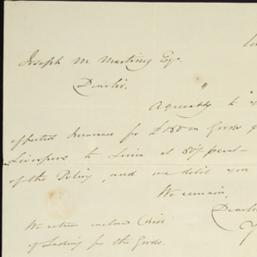 Joseph M Martiny Esqr.
Dear Sir.
Agreeably to
effected Insurance for £ on Goods
Liverpool to Lima at pr cent
of the Policy, and we debit you
We remain,
Dear Sir
We return enclosed
of Lading for the Goods.